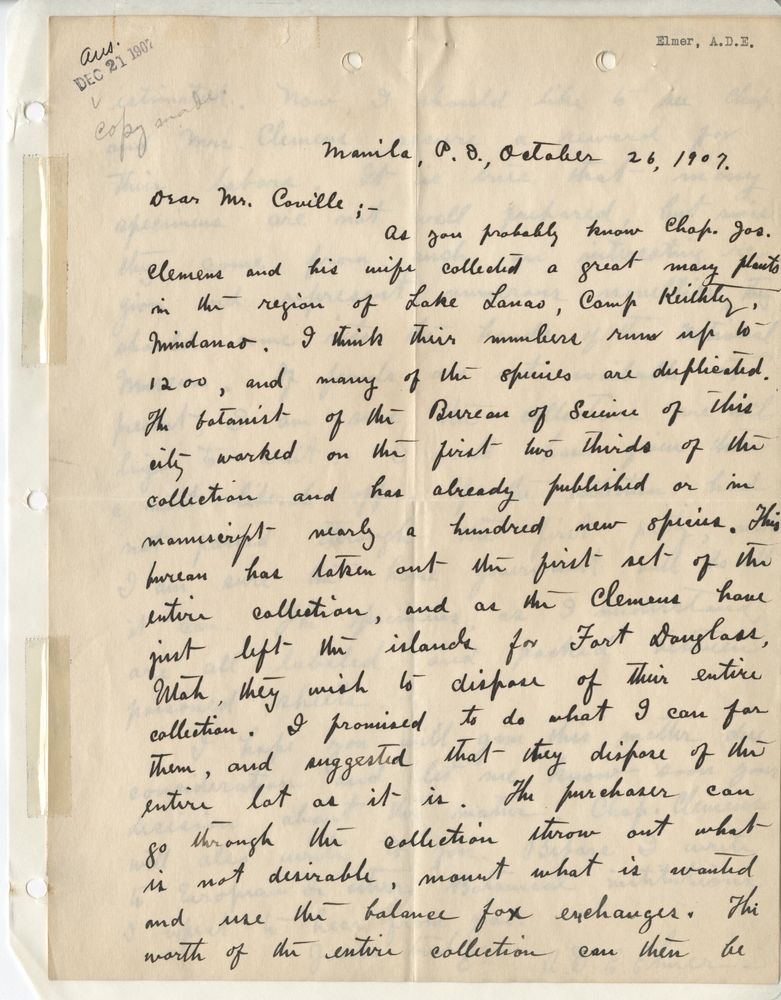 Elmer, A.D.E.
ans.
DEC 21 1907
copy made
Manila, P. I., October 26, 1907.
Dear Mr. Coville;-
As you probably know Chap. Jos.
Clemens and his wife collected a great many plants
in the region of Lake Lanao, Camp Keithley,
Mindanao. I think their numbers run up to
1200, and many of the species are duplicated.
The botanist of the Bureau of Science of this
city worked on the first two thirds of the
collection and has already published or in
manuscript nearly a hundred new species. This
bureau has taken out the first set of the
entire collection, and as the Clemens have
just left the islands for Fort Douglass,
Utah, they wish to dispose of their entire
collection. I promised to do what I can for
them, and suggested that they dispose of the
entire lot as it is. The purchaser can
go through the collection throw out what
is not desirable, mount what is wanted
and use the balance for exchanges. The
worth of the entire collection can then be